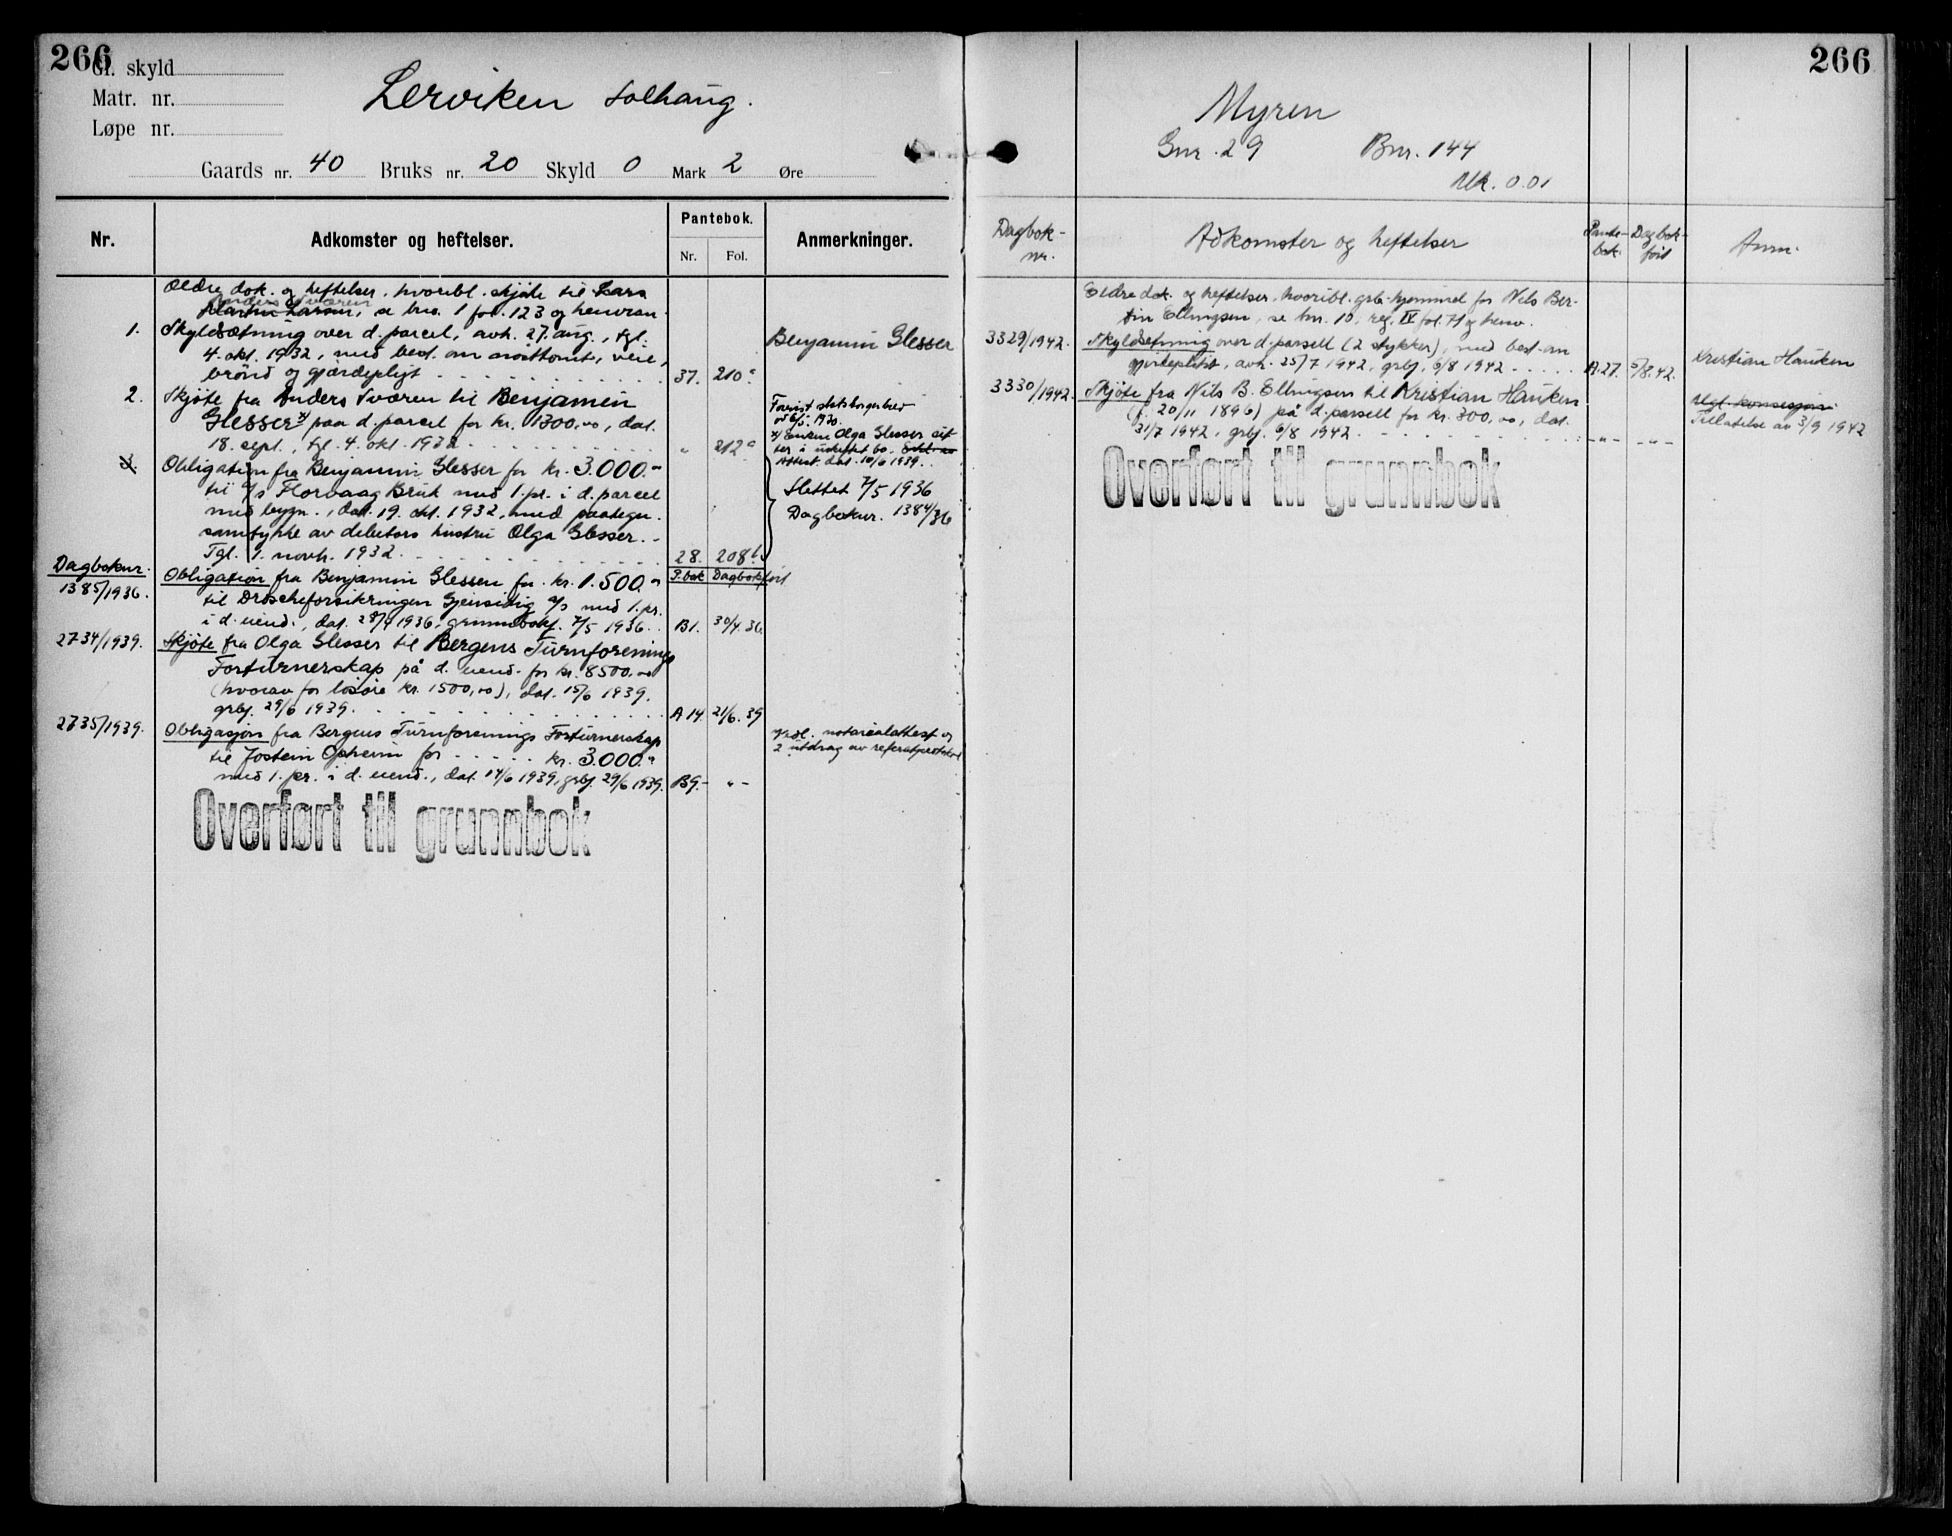 266
Gl. skyld
Matr. nr.
Løpe nr.
Lerviken Solhaug.
Gaards nr. 40 Bruks nr. 20 Skyld 0 Mark 2 Øre
Nr.
Adkomster og heftelser.
Pantebok.
Nr. Fol.
Anmerkninger.
Ældre dok. og heftelser, hvoribl. skjøte til Lars
Anders Tværen
Martin Larsen, se bno. 1 fol. 123 og henvisn.
1. Skyldsætning over d. parcel, avh. 27. aug., tgl.
4. okt. 1932, med best. om nosttomt, veie,
brønd og gjærdepligt 37. 210a.
Benjamin Glesser
2. Skjøte fra Anders Tværen til Benjamin
Glesser x) paa d. parcel for kr. 1300,00, dat.
18. sept., tgl. 4. okt. 1932 " 212a
Forevist statsborgerbrev
av 6/5. 1930.
x) Enken Olga Glesser sit-
ter i uskiftet bo.
Attest. dat. 10/6 1939.
3. Obligation fra Benjamin Glesser for kr. 3.000.-
til A/s Florvaag Bruk med 1. pr. i d. parcel
med bygn., dat. 19. okt. 1932, med paategn.
samtykke av debitors hustru Olga Glesser.
Tgl. 1. novb. 1932. 28. 208b.
Slettet 7/5 1936
Dagboknr. 1384/36
Dagboknr. P.bok Dagbokført
1385/1936. Obligation fra Benjamin Glesser for kr. 1.500.-
til Droscheforsikringen Gjensidig A/s med 1. pr.
i d. eiend., dat. 28/4 1936, grunnbokf. 7/5 1936. B1. 30/4.36.
2734/1939. Skjøte fra Olga Glesser til Bergens Turnforenings
Forturnerskap på d. eiend. for kr. 8500,00
(hvorav for løsøre kr. 1500,00), dat. 15/6 1939,
grbf. 29/6 1939. A 14. 21/6.39
2735/1939. Obligasjon fra Bergens Turnforenings Forturnerskap
til Jostein Opheim for kr. 3.000.-
med 1. pr. i d. eiend., dat. 14/6 1939, grbf. 29/6 1939. B9.- -"-
Vedl. notarialattest og
2 utdrag av referatprotokol
Overført til grunnbok
266
Myren
Gnr. 29 Bnr. 144
Mk. 0.01
Dagbok-
nr.
Adkomster og heftelser
Pante-
bok.
Dagbok-
ført
Anm.
Eldre dok. og heftelser, hvoribl. grb. hjemmel for Nils Ber-
tin Ellingsen, se bnr. 10, reg. IV fol. 71 og henv.
3329/1942. Skyldsetning over d. parsell (2 stykker), med best. om
gjerdeplikt, avh. 25/7 1942, grbf. 6/8 1942 A.27. 5/8.42.
Kristian Hauken
3330/1942. Skjøte fra Nils B. Ellingsen til Kristian Hauken
(f. 20/11 1896) på d. parsell for kr. 300,00, dat.
31/7 1942, grbf. 6/8 1942. -"- -"-
Ugl. konsesjon.
Tillatelse av 3/9 1942
Overført til grunnbok